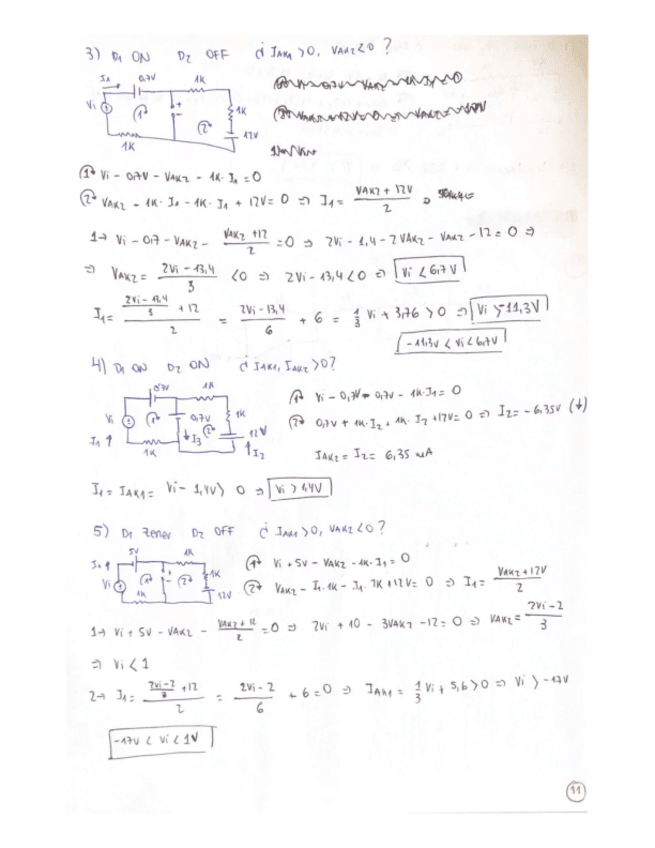 3) D1 ON D2 OFF ¿ IAK1 > 0, VAK2 < 0 ?
I1 0,7V 1K
Vi 1 2 1K
12V
1K
1) Vi - 0,7V - VAK2 - 1K· I1 = 0
2) VAK2 - 1K· I1 - 1K· I1 + 12V = 0 ⇒ I1 = (VAK2 + 12V)/2 ⇒
1→ Vi - 0,7 - VAK2 - (VAK2 + 12)/2 = 0 ⇒ 2Vi - 1,4 - 2VAK2 - VAK2 - 12 = 0 ⇒
⇒ VAK2 = (2Vi - 13,4)/3 < 0 ⇒ 2Vi - 13,4 < 0 ⇒ Vi < 6,7V
I1 = ((2Vi - 13,4)/3 + 12)/2 = (2Vi - 13,4)/6 + 6 = 1/3 Vi + 3,76 > 0 ⇒ Vi > -11,3V
-11,3V < Vi < 6,7V
4) D1 ON D2 ON ¿ IAK1, IAK2 > 0?
0,7V 1K
Vi 1 0,7V 2 1K
I1 1K I3 12V I2
1) Vi - 0,7V - 0,7V - 1K·I1 = 0
2) 0,7V + 1K·I2 + 1K· I2 + 12V = 0 ⇒ I2 = -6,35V (↓)
IAK2 = I2 = 6,35 mA
I1 = IAK1 = Vi - 1,4V > 0 ⇒ Vi > 1,4V
5) D1 Zener D2 OFF ¿ IAK1 > 0, VAK2 < 0 ?
5V 1K
Vi 1 2 1K
1K 12V
1) Vi + 5V - VAK2 - 1K· I1 = 0
2) VAK2 - I1·1K - I1· 1K + 12V = 0 ⇒ I1 = (VAK2 + 12V)/2
1→ Vi + 5V - VAK2 - (VAK2 + 12)/2 = 0 ⇒ 2Vi + 10 - 3VAK2 - 12 = 0 ⇒ VAK2 = (2Vi - 2)/3
⇒ Vi < 1
2→ I1 = ((2Vi - 2)/3 + 12)/2 = (2Vi - 2)/6 + 6 = 0 ⇒ IAK1 = 1/3 Vi + 5,6 > 0 ⇒ Vi > -17V
-17V < Vi < 1V
11